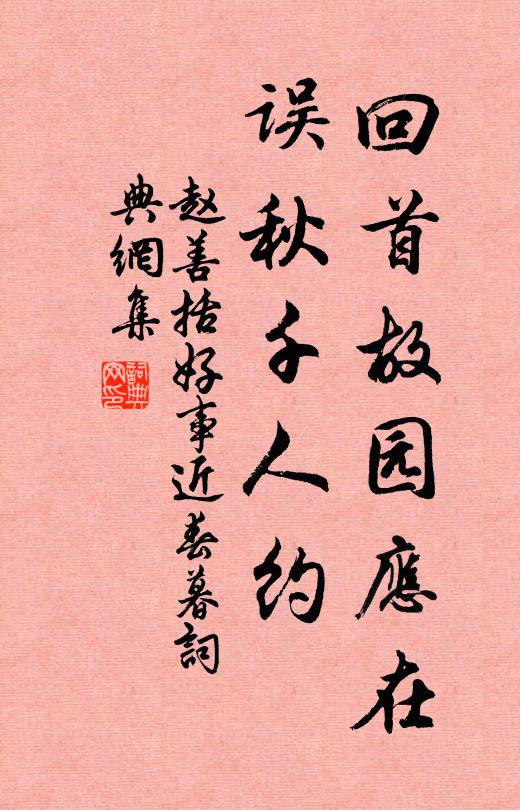 回首故园應在
误秋千人约
赵善括好事近春暮詞
典網集
詞典网印